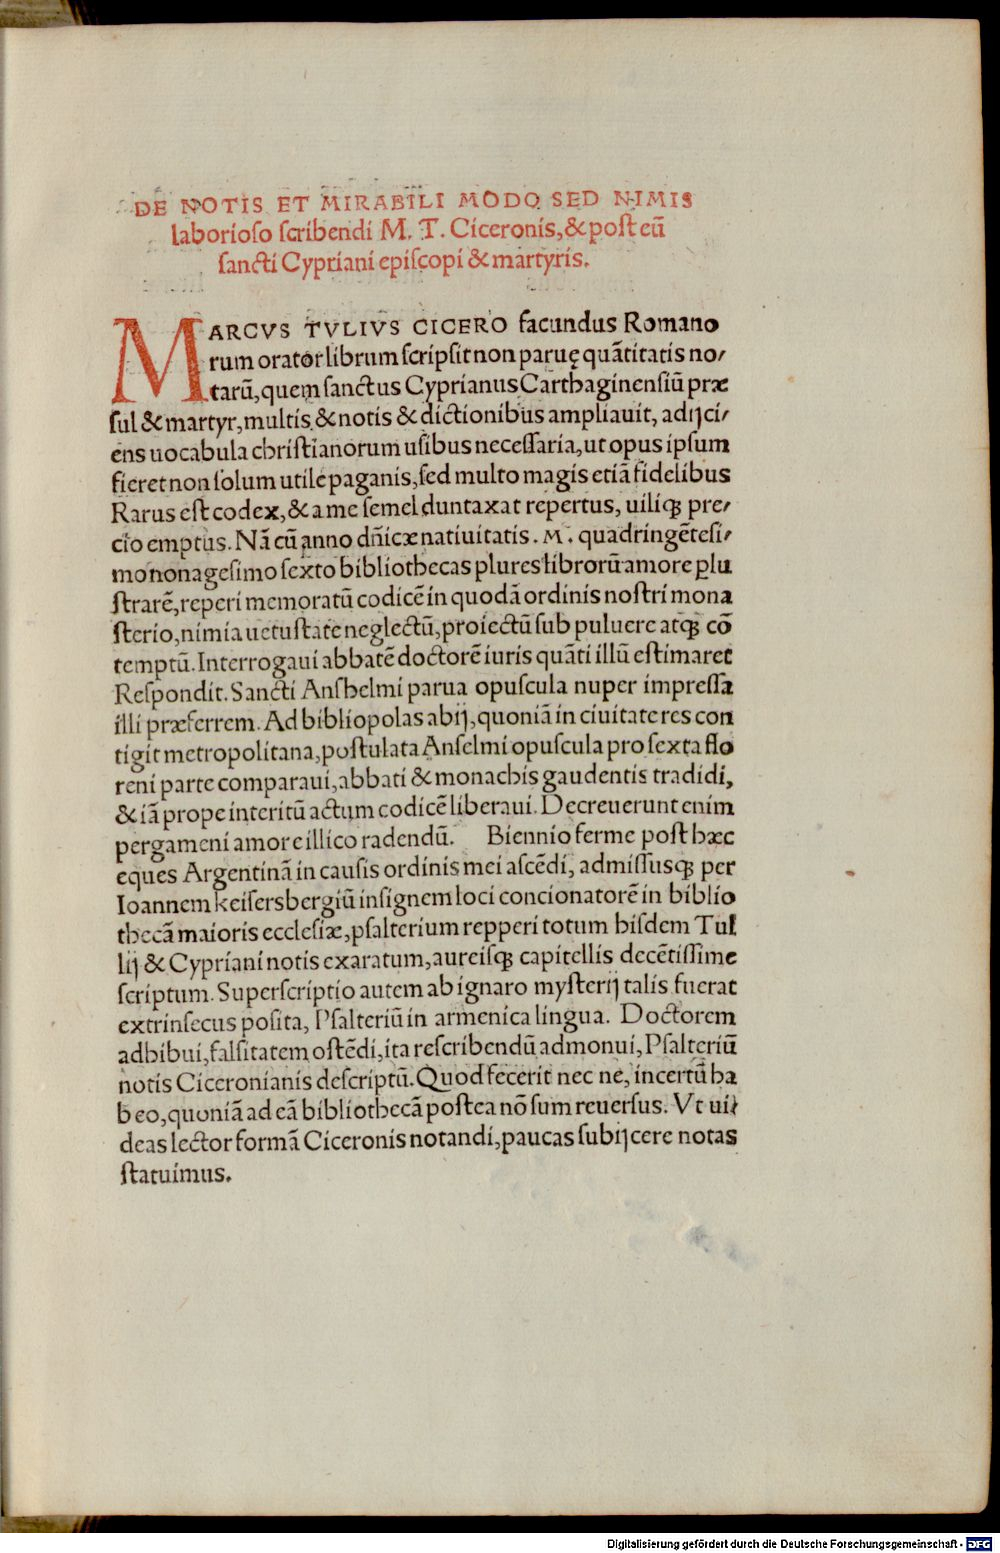 DE NOTIS ET MIRABILI MODO SED NIMIS
laborioso scribendi M. T. Ciceronis, & post eū
sancti Cypriani episcopi & martyris.
MARCVS TVLIVS CICERO facundus Romano
rum orator librum scripsit non paruę quātitatis no/
tarū, quem sanctus Cyprianus Carthaginensiū præ
sul & martyr, multis & notis & dictionibus ampliauit, adijci/
ens uocabula christianorum usibus necessaria, ut opus ipsum
fieret non solum utile paganis, sed multo magis etiā fidelibus
Rarus est codex, & a me semel duntaxat repertus, uiliqꝫ pre/
cio emptus. Nā cū anno dn̄icæ natiuitatis. M. quadringētesi/
mo nonagesimo sexto bibliothecas plures librorū amore ꝑlu
strarē, reperi memoratū codicē in quodā ordinis nostri mona
sterio, nimia uetustate neglectū, proiectū sub puluere atqꝫ cō
temptū. Interrogaui abbatē doctorē iuris quāti illū estimaret
Respondit. Sancti Anshelmi parua opuscula nuper impressa
illi præferrem. Ad bibliopolas abij, quoniā in ciuitate res con
tigit metropolitana, postulata Anselmi opuscula pro sexta flo
reni parte comparaui, abbati & monachis gaudentis tradidi,
& iā prope interitū actum codicē liberaui. Decreuerunt enim
pergameni amore illico radendū. Biennio ferme post hæc
eques Argentinā in causis ordinis mei ascēdi, admissusqꝫ per
Ioannem keisersbergiū insignem loci concionatorē in biblio
thecā maioris ecclesiæ, psalterium repperi totum hisdem Tul
lij & Cypriani notis exaratum, aureisqꝫ capitellis decētissime
scriptum. Superscriptio autem ab ignaro mysterij talis fuerat
extrinsecus posita, Psalteriū in armenica lingua. Doctorem
adhibui, falsitatem ostēdi, ita rescribendū admonui, Psalteriū
notis Ciceronianis descriptū. Quod fecerit nec ne, incertū ha
beo, quoniā ad eā bibliothecā postea nō sum reuersus. Vt ui/
deas lector formā Ciceronis notandi, paucas subijcere notas
statuimus.
Digitalisierung gefördert durch die Deutsche Forschungsgemeinschaft - DFG